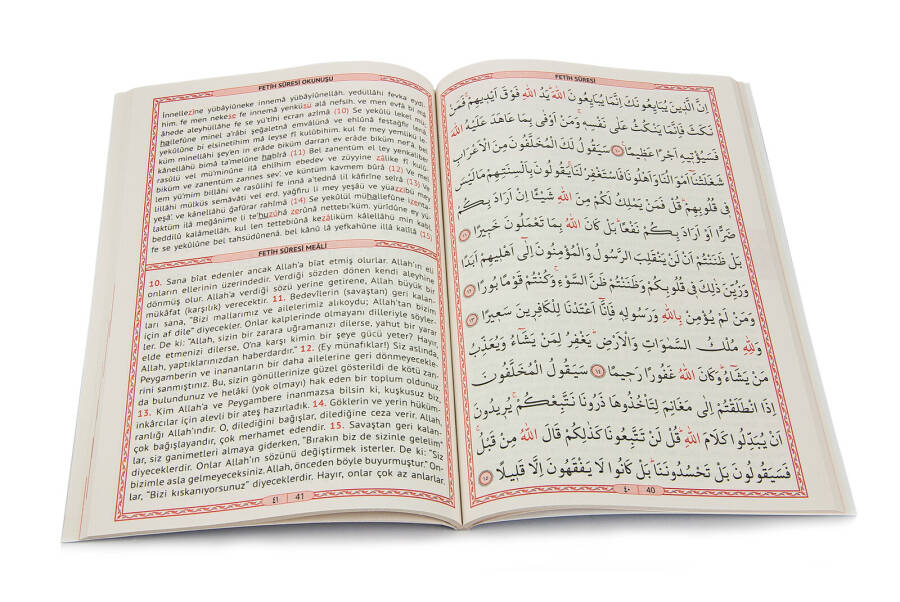 FETİH SÛRESİ
اِنَّ الَّذ۪ينَ يُبَايِعُونَكَ اِنَّمَا يُبَايِعُونَ اللّٰهَ يَدُ اللّٰهِ فَوْقَ اَيْد۪يهِمْ فَمَنْ
نَكَثَ فَاِنَّمَا يَنْكُثُ عَلٰى نَفْسِه۪ وَمَنْ اَوْفٰى بِمَا عَاهَدَ عَلَيْهُ اللّٰهَ
فَسَيُؤْت۪يهِ اَجْرًا عَظ۪يمًا ﴿١٠﴾ سَيَقُولُ لَكَ الْمُخَلَّفُونَ مِنَ الْاَعْرَابِ
شَغَلَتْنَا اَمْوَالُنَا وَاَهْلُونَا فَاسْتَغْفِرْ لَنَا يَقُولُونَ بِاَلْسِنَتِهِمْ مَا لَيْسَ
ف۪ي قُلُوبِهِمْ قُلْ فَمَنْ يَمْلِكُ لَكُمْ مِنَ اللّٰهِ شَيْئًا اِنْ اَرَادَ بِكُمْ
ضَرًّا اَوْ اَرَادَ بِكُمْ نَفْعًا بَلْ كَانَ اللّٰهُ بِمَا تَعْمَلُونَ خَب۪يرًا ﴿١١﴾
بَلْ ظَنَنْتُمْ اَنْ لَنْ يَنْقَلِبَ الرَّسُولُ وَالْمُؤْمِنُونَ اِلٰٓى اَهْل۪يهِمْ اَبَدًا
وَزُيِّنَ ذٰلِكَ ف۪ي قُلُوبِكُمْ وَظَنَنْتُمْ ظَنَّ السَّوْءِ وَكُنْتُمْ قَوْمًا بُورًا ﴿١٢﴾
وَمَنْ لَمْ يُؤْمِنْ بِاللّٰهِ وَرَسُولِه۪ فَاِنَّٓا اَعْتَدْنَا لِلْكَافِر۪ينَ سَع۪يرًا ﴿١٣﴾
وَلِلّٰهِ مُلْكُ السَّمٰوَاتِ وَالْاَرْضِ يَغْفِرُ لِمَنْ يَشَٓاءُ وَيُعَذِّبُ
مَنْ يَشَٓاءُ وَكَانَ اللّٰهُ غَفُورًا رَح۪يمًا ﴿١٤﴾ سَيَقُولُ الْمُخَلَّفُونَ
اِذَا انْطَلَقْتُمْ اِلٰى مَغَانِمَ لِتَأْخُذُوهَا ذَرُونَا نَتَّبِعْكُمْ يُر۪يدُونَ
اَنْ يُبَدِّلُوا كَلَامَ اللّٰهِ قُلْ لَنْ تَتَّبِعُونَا كَذٰلِكُمْ قَالَ اللّٰهُ مِنْ قَبْلُ
فَسَيَقُولُونَ بَلْ تَحْسُدُونَنَا بَلْ كَانُوا لَا يَفْقَهُونَ اِلَّا قَل۪يلًا ﴿١٥﴾
٤٠ 40
FETİH SÛRESİ OKUNUŞU
İnnellezîne yübâyiûneke innemâ yübâyiûnellâh, yedüllâhi fevka eydi
him, fe men nekese fe innemâ yenküsü alâ nefsih, ve men evfâ bi mâ
âhede aleyhüllâhe fe se yü'tîhi ecran azîmâ (10) Se yekûlü lekel mü
hallefûne minel a'râbi şeğaletnâ emvâlünâ ve ehlûnâ festağfir lenâ,
yekûlûne bi elsinetihim mâ leyse fî kulûbihim, kul fe mey yemlikü le
küm minellâhi şey'en in erâde biküm darran ev erâde biküm nef'â, bel
kânellâhü bimâ ta'melûne habîrâ (11) Bel zanentüm el ley yenkaliber
rasûlü vel mü'minûne ilâ ehlîhim ebedev ve züyyine zâlike fî kulû
biküm ve zanentüm zannes sev', ve küntüm kavmem bûrâ (12) Ve mel
lem yü'mim billâhi ve rasûlihî fe innâ a'tednâ lil kâfirîne seîrâ (13) Ve
lillâhi mülküs semâvâti vel erd, yağfiru li mey yeşâü ve yüazzibü mey
yeşâ', ve kânellâhü ğafûrar rahîmâ (14) Se yekûlül mühallefûne izen
talaktüm ilâ meğânime li te'huzûhâ zerûnâ nettebi'küm, yürîdûne ey yü
beddilû kalâmellâh, kul len tettebiûnâ kezâliküm kâlellâhü min kabl,
fe se yekûlûne bel tahsüdûnenâ, bel kânû lâ yefkahûne illâ kalîlâ (15)
FETİH SÛRESİ MEÂLİ
10. Sana bîat edenler ancak Allah'a bîat etmiş olurlar. Allah'ın eli
onların ellerinin üzerindedir. Verdiği sözden dönen kendi aleyhine
dönmüş olur. Allah'a verdiği sözü yerine getirene, Allah büyük bir
mükâfat (karşılık) verecektir. 11. Bedevîlerin (savaştan) geri kalan-
ları sana, "Bizi mallarımız ve ailelerimiz alıkoydu; Allah'tan bizim
için af dile" diyecekler. Onlar kalplerinde olmayanı dilleriyle söyler-
ler. De ki: "Allah, sizin bir zarara uğramanızı dilerse, yahut bir yarar
elde etmenizi dilerse, O'na karşı kimin bir şeye gücü yeter? Hayır,
Allah, yaptıklarınızdan haberdardır." 12. (Ey münafıklar!) Siz aslında,
Peygamberin ve inananların bir daha ailelerine geri dönmeyecekle-
rini sanmıştınız. Bu, sizin gönüllerinize güzel gösterildi de kötü zan-
da bulundunuz ve helâki (yok olmayı) hak eden bir toplum oldunuz.
13. Kim Allah'a ve Peygambere inanmazsa bilsin ki, kuşkusuz biz,
inkârcılar için alevli bir ateş hazırladık. 14. Göklerin ve yerin hüküm-
ranlığı Allah'ındır. O, dilediğini bağışlar, dilediğine ceza verir. Allah,
çok bağışlayandır, çok merhamet edendir. 15. Savaştan geri kalan-
lar, siz ganimetleri almaya giderken, "Bırakın biz de sizinle gelelim"
diyeceklerdir. Onlar Allah'ın sözünü değiştirmek isterler. De ki: "Siz
bizimle asla gelmeyeceksiniz. Allah, önceden böyle buyurmuştur." On-
lar, "Bizi kıskanıyorsunuz" diyeceklerdir. Hayır, onlar çok az anlarlar.
٤١ 41